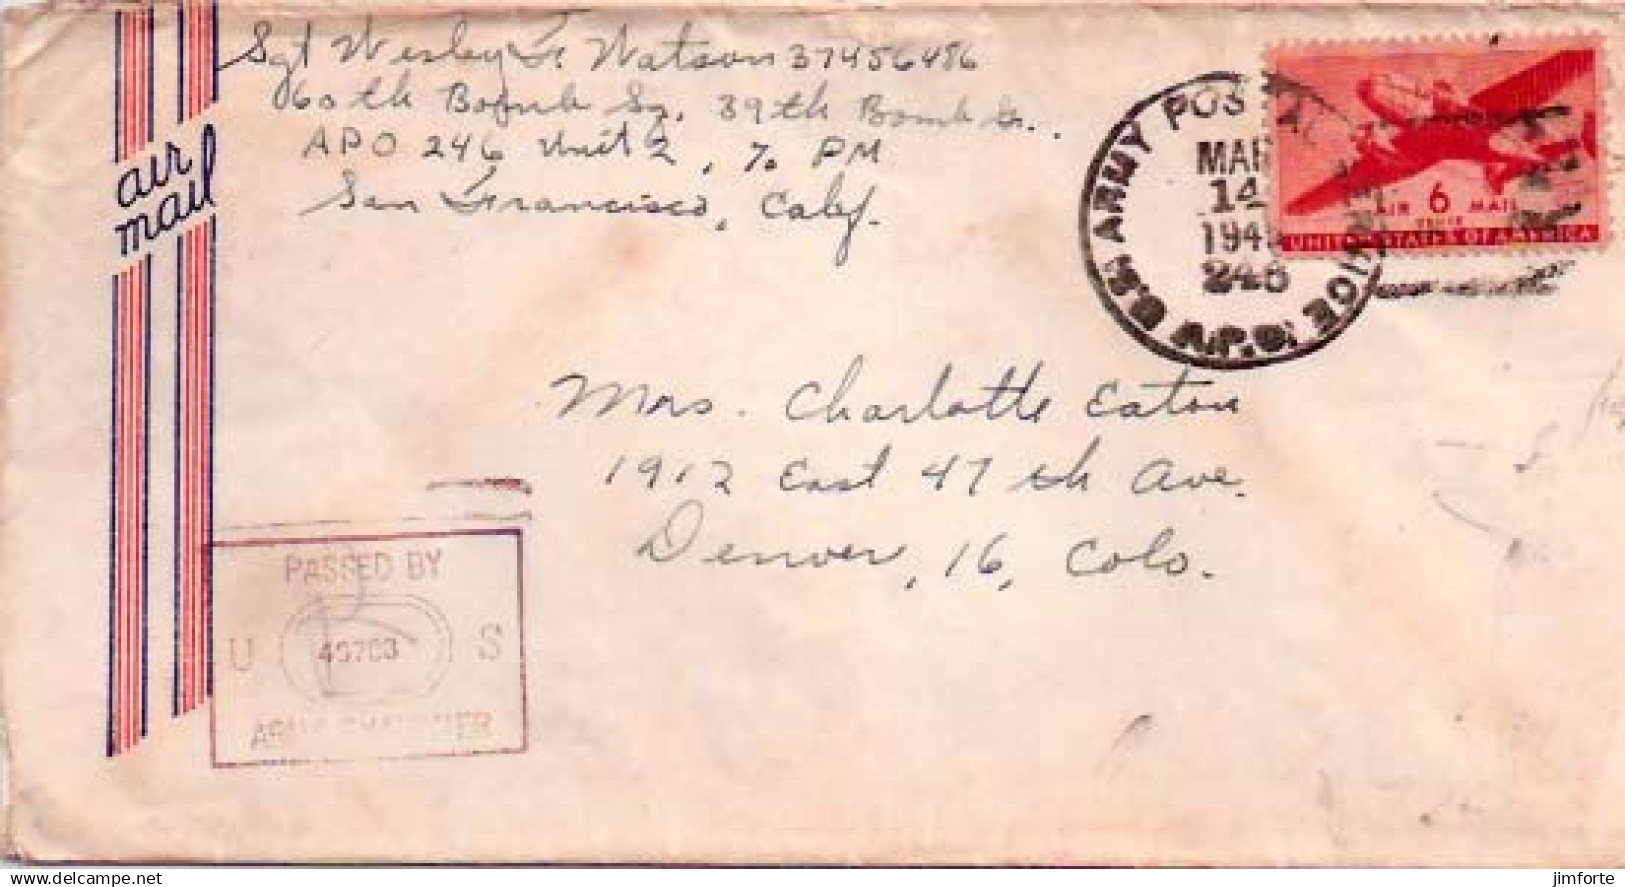 Sgt Wesley F. Watson 37456486
60th Bomb Sq. 39th Bomb Gr.
APO 246 Unit 2, % PM
San Francisco, Calif.
air
mail
U.S. ARMY POSTAL SERVICE
MAR
14
194
246
A.P.O.
6
AIR MAIL
CENTS
UNITED STATES OF AMERICA
Mrs. Charlotte Eaton
1912 East 47th Ave.
Denver, 16, Colo.
PASSED BY
U S
ARMY EXAMINER
jimforte